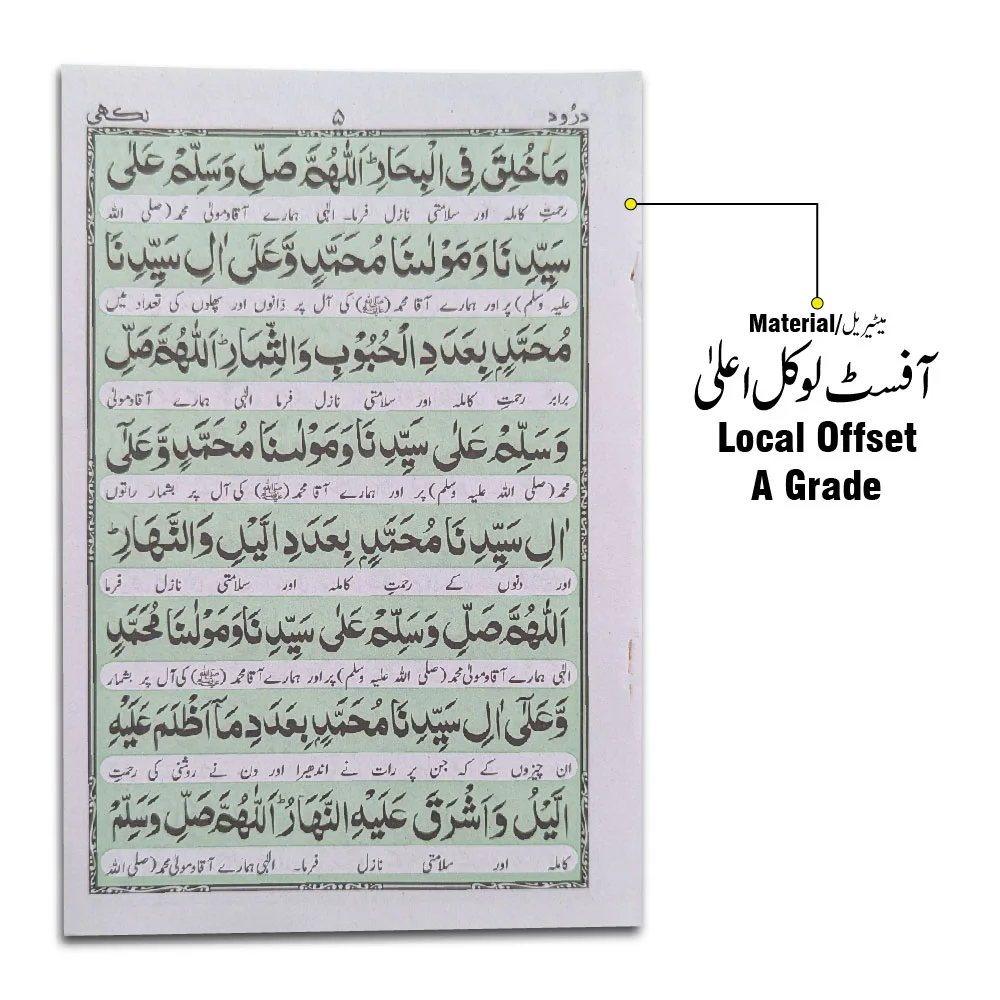 درُود ۵ لکھی
مَا خُلِقَ فِی الْبِحَارِ ؕ اَللّٰهُمَّ صَلِّ وَسَلِّمْ عَلٰی
رحمتِ کاملہ اور سلامتی نازل فرما۔ الٰہی ہمارے آقا و مولیٰ محمد (صلی اللہ
سَیِّدِنَا وَمَوْلٰىنَا مُحَمَّدٍ وَّعَلٰٓی اٰلِ سَیِّدِنَا
علیہ وسلم) پر اور ہمارے آقا محمد (ﷺ) کی آل پر دانوں اور پھلوں کی تعداد میں
مُحَمَّدٍ بِعَدَدِ الْحُبُوْبِ وَالثِّمَارِ ؕ اَللّٰهُمَّ صَلِّ
برابر رحمتِ کاملہ اور سلامتی نازل فرما الٰہی ہمارے آقا و مولیٰ
وَسَلِّمْ عَلٰی سَیِّدِنَا وَمَوْلٰىنَا مُحَمَّدٍ وَّعَلٰٓی
محمد (صلی اللہ علیہ وسلم) پر اور ہمارے آقا محمد (ﷺ) کی آل پر بشمار راتوں
اٰلِ سَیِّدِنَا مُحَمَّدٍ بِعَدَدِ الَّیْلِ وَالنَّهَارِ ؕ
اور دنوں کے رحمتِ کاملہ اور سلامتی نازل فرما
اَللّٰهُمَّ صَلِّ وَسَلِّمْ عَلٰی سَیِّدِنَا وَمَوْلٰىنَا مُحَمَّدٍ
الٰہی ہمارے آقا و مولیٰ محمد (صلی اللہ علیہ وسلم) پر اور ہمارے آقا محمد (ﷺ) کی آل پر بشمار
وَّعَلٰٓی اٰلِ سَیِّدِنَا مُحَمَّدٍ بِعَدَدِ مَاۤ اَظْلَمَ عَلَیْهِ
ان چیزوں کے کہ جن پر رات نے اندھیرا اور دن نے روشنی کی رحمتِ
الَّیْلُ وَاَشْرَقَ عَلَیْهِ النَّهَارُ ؕ اَللّٰهُمَّ صَلِّ وَسَلِّمْ
کاملہ اور سلامتی نازل فرما۔ الٰہی ہمارے آقا و مولیٰ محمد (صلی اللہ
Material/میٹیریل
آفسٹ لوکل اعلیٰ
Local Offset
A Grade